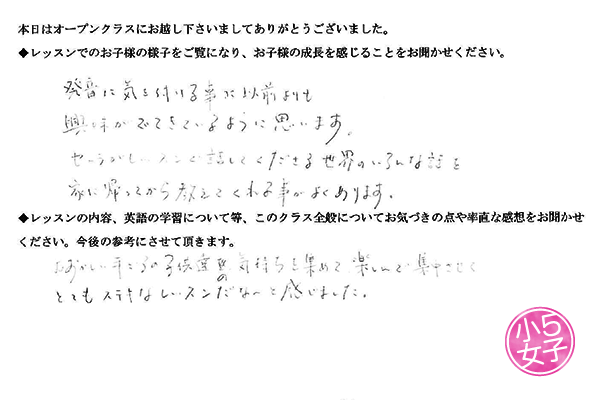 本日はオープンクラスにお越し下さいましてありがとうございました。
◆レッスンでのお子様の様子をご覧になり、お子様の成長を感じることをお聞かせください。
発音に気を付ける事に以前よりも
興味がでてきているように思います。
レッスンで話してくださる世界のいろんな話を
家に帰ってから教えてくれる事がよくあります。
◆レッスンの内容、英語の学習について等、このクラス全般についてお気づきの点や率直な感想をお聞かせ
ください。今後の参考にさせて頂きます。
子供達の気持ちを集めて楽しんで集中させて
とてもステキなレッスンだなーと感じました。
小5
女子